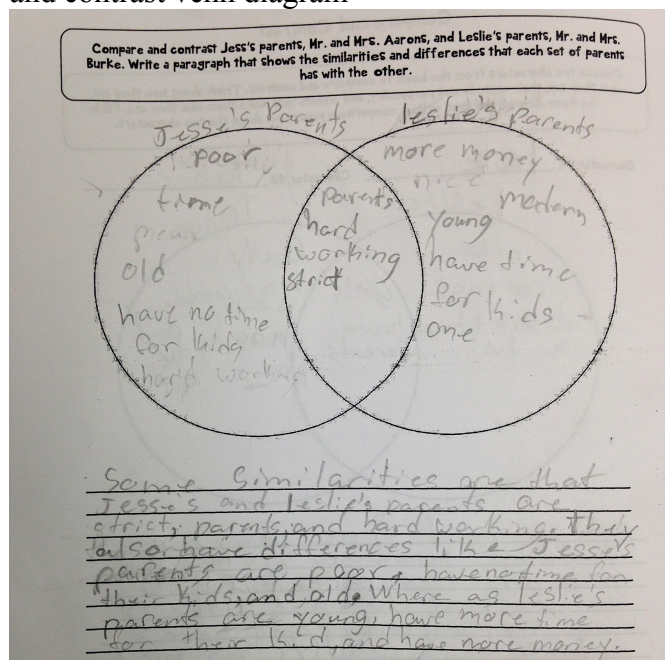 and contrast Venn diagram
Compare and contrast Jess's parents, Mr. and Mrs. Aarons, and Leslie's parents, Mr. and Mrs.
Burke. Write a paragraph that shows the similarities and differences that each set of parents
has with the other.
Jesse's Parents
poor
time
mean
old
have no time
for kids
hard working
Parents
hard
working
strict
leslie's parents
more money
nice
modern
young
have time
for kids
one
Some similarities are that
Jesse's and leslie's parents are
strict, parents, and hard working. They
also have differences like Jesse's
parents are poor, have no time for
their kids, and old. Where as leslie's
parents are young, have more time
for their kid, and have more money.